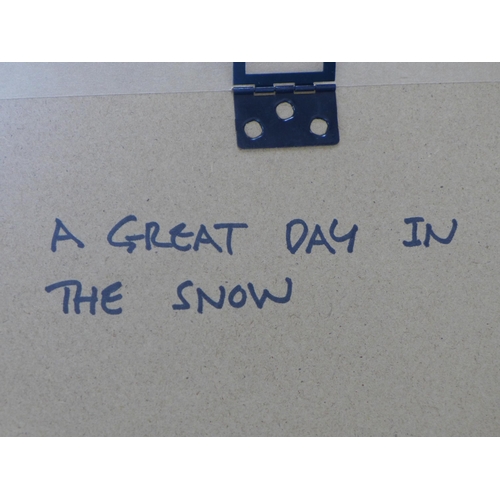 A GREAT DAY IN
THE SNOW